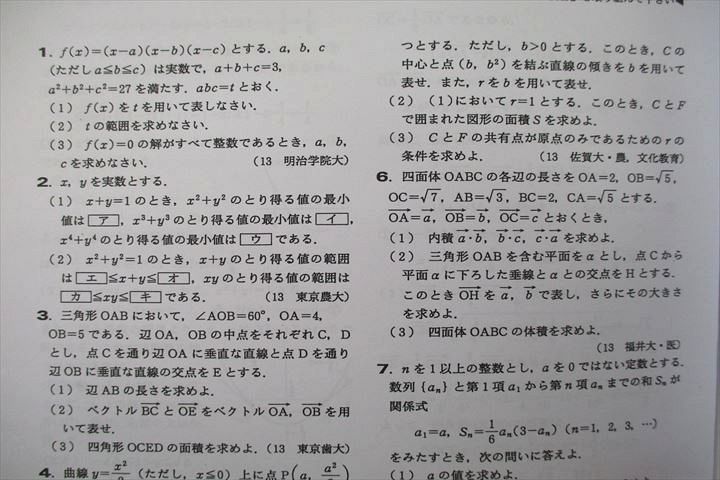 1. f(x)=(x-a)(x-b)(x-c) とする．a，b，c
（ただし a≦b≦c）は実数で，a+b+c=3，
a²+b²+c²=27 を満たす．abc=t とおく．
（1） f(x) を t を用いて表しなさい．
（2） t の範囲を求めなさい．
（3） f(x)=0 の解がすべて整数であるとき，a，b，
c を求めなさい．　（13 明治学院大）
2. x，y を実数とする．
（1） x+y=1 のとき，x²+y² のとり得る値の最小
値は ア ，x³+y³ のとり得る値の最小値は イ ，
x⁴+y⁴ のとり得る値の最小値は ウ である．
（2） x²+y²=1 のとき，x+y のとり得る値の範囲
は エ ≦x+y≦ オ ，xy のとり得る値の範囲は
カ ≦xy≦ キ である．　（13 東京農大）
3. 三角形 OAB において，∠AOB=60°，OA=4，
OB=5 である．辺 OA，OB の中点をそれぞれ C，D
とし，点 C を通り辺 OA に垂直な直線と点 D を通り
辺 OB に垂直な直線の交点を E とする．
（1） 辺 AB の長さを求めよ．
（2） ベクトル BC と OE をベクトル OA，OB を用
いて表せ．
（3） 四角形 OCED の面積を求めよ．（13 東京歯大）
4. 曲線 y=x²/（ただし，x≦0）上に点 P(a, a²/
つとする．ただし，b>0 とする．このとき，C の
中心と点 (b, b²) を結ぶ直線の傾きを b を用いて
表せ．また，r を b を用いて表せ．
（2） （1）において r=1 とする．このとき，C と F
で囲まれた図形の面積 S を求めよ．
（3） C と F の共有点が原点のみであるための r の
条件を求めよ．　（13 佐賀大・農，文化教育）
6. 四面体 OABC の各辺の長さを OA=2，OB=√5，
OC=√7，AB=√3，BC=2，CA=√5 とする．
OA=a，OB=b，OC=c とおくとき，
（1） 内積 a・b，b・c，c・a を求めよ．
（2） 三角形 OAB を含む平面を α とし，点 C から
平面 α に下ろした垂線と α との交点を H とする．
このとき OH を a，b で表し，さらにその大きさ
を求めよ．
（3） 四面体 OABC の体積を求めよ．
（13 福井大・医）
7. n を 1 以上の整数とし，a を 0 ではない定数とする．
数列 {aₙ} と第 1 項 a₁ から第 n 項 aₙ までの和 Sₙ が
関係式
a₁=a，Sₙ=1/6 aₙ(3-aₙ)（n=1，2，3，…）
をみたすとき，次の問いに答えよ．
（1） a の値を求めよ．